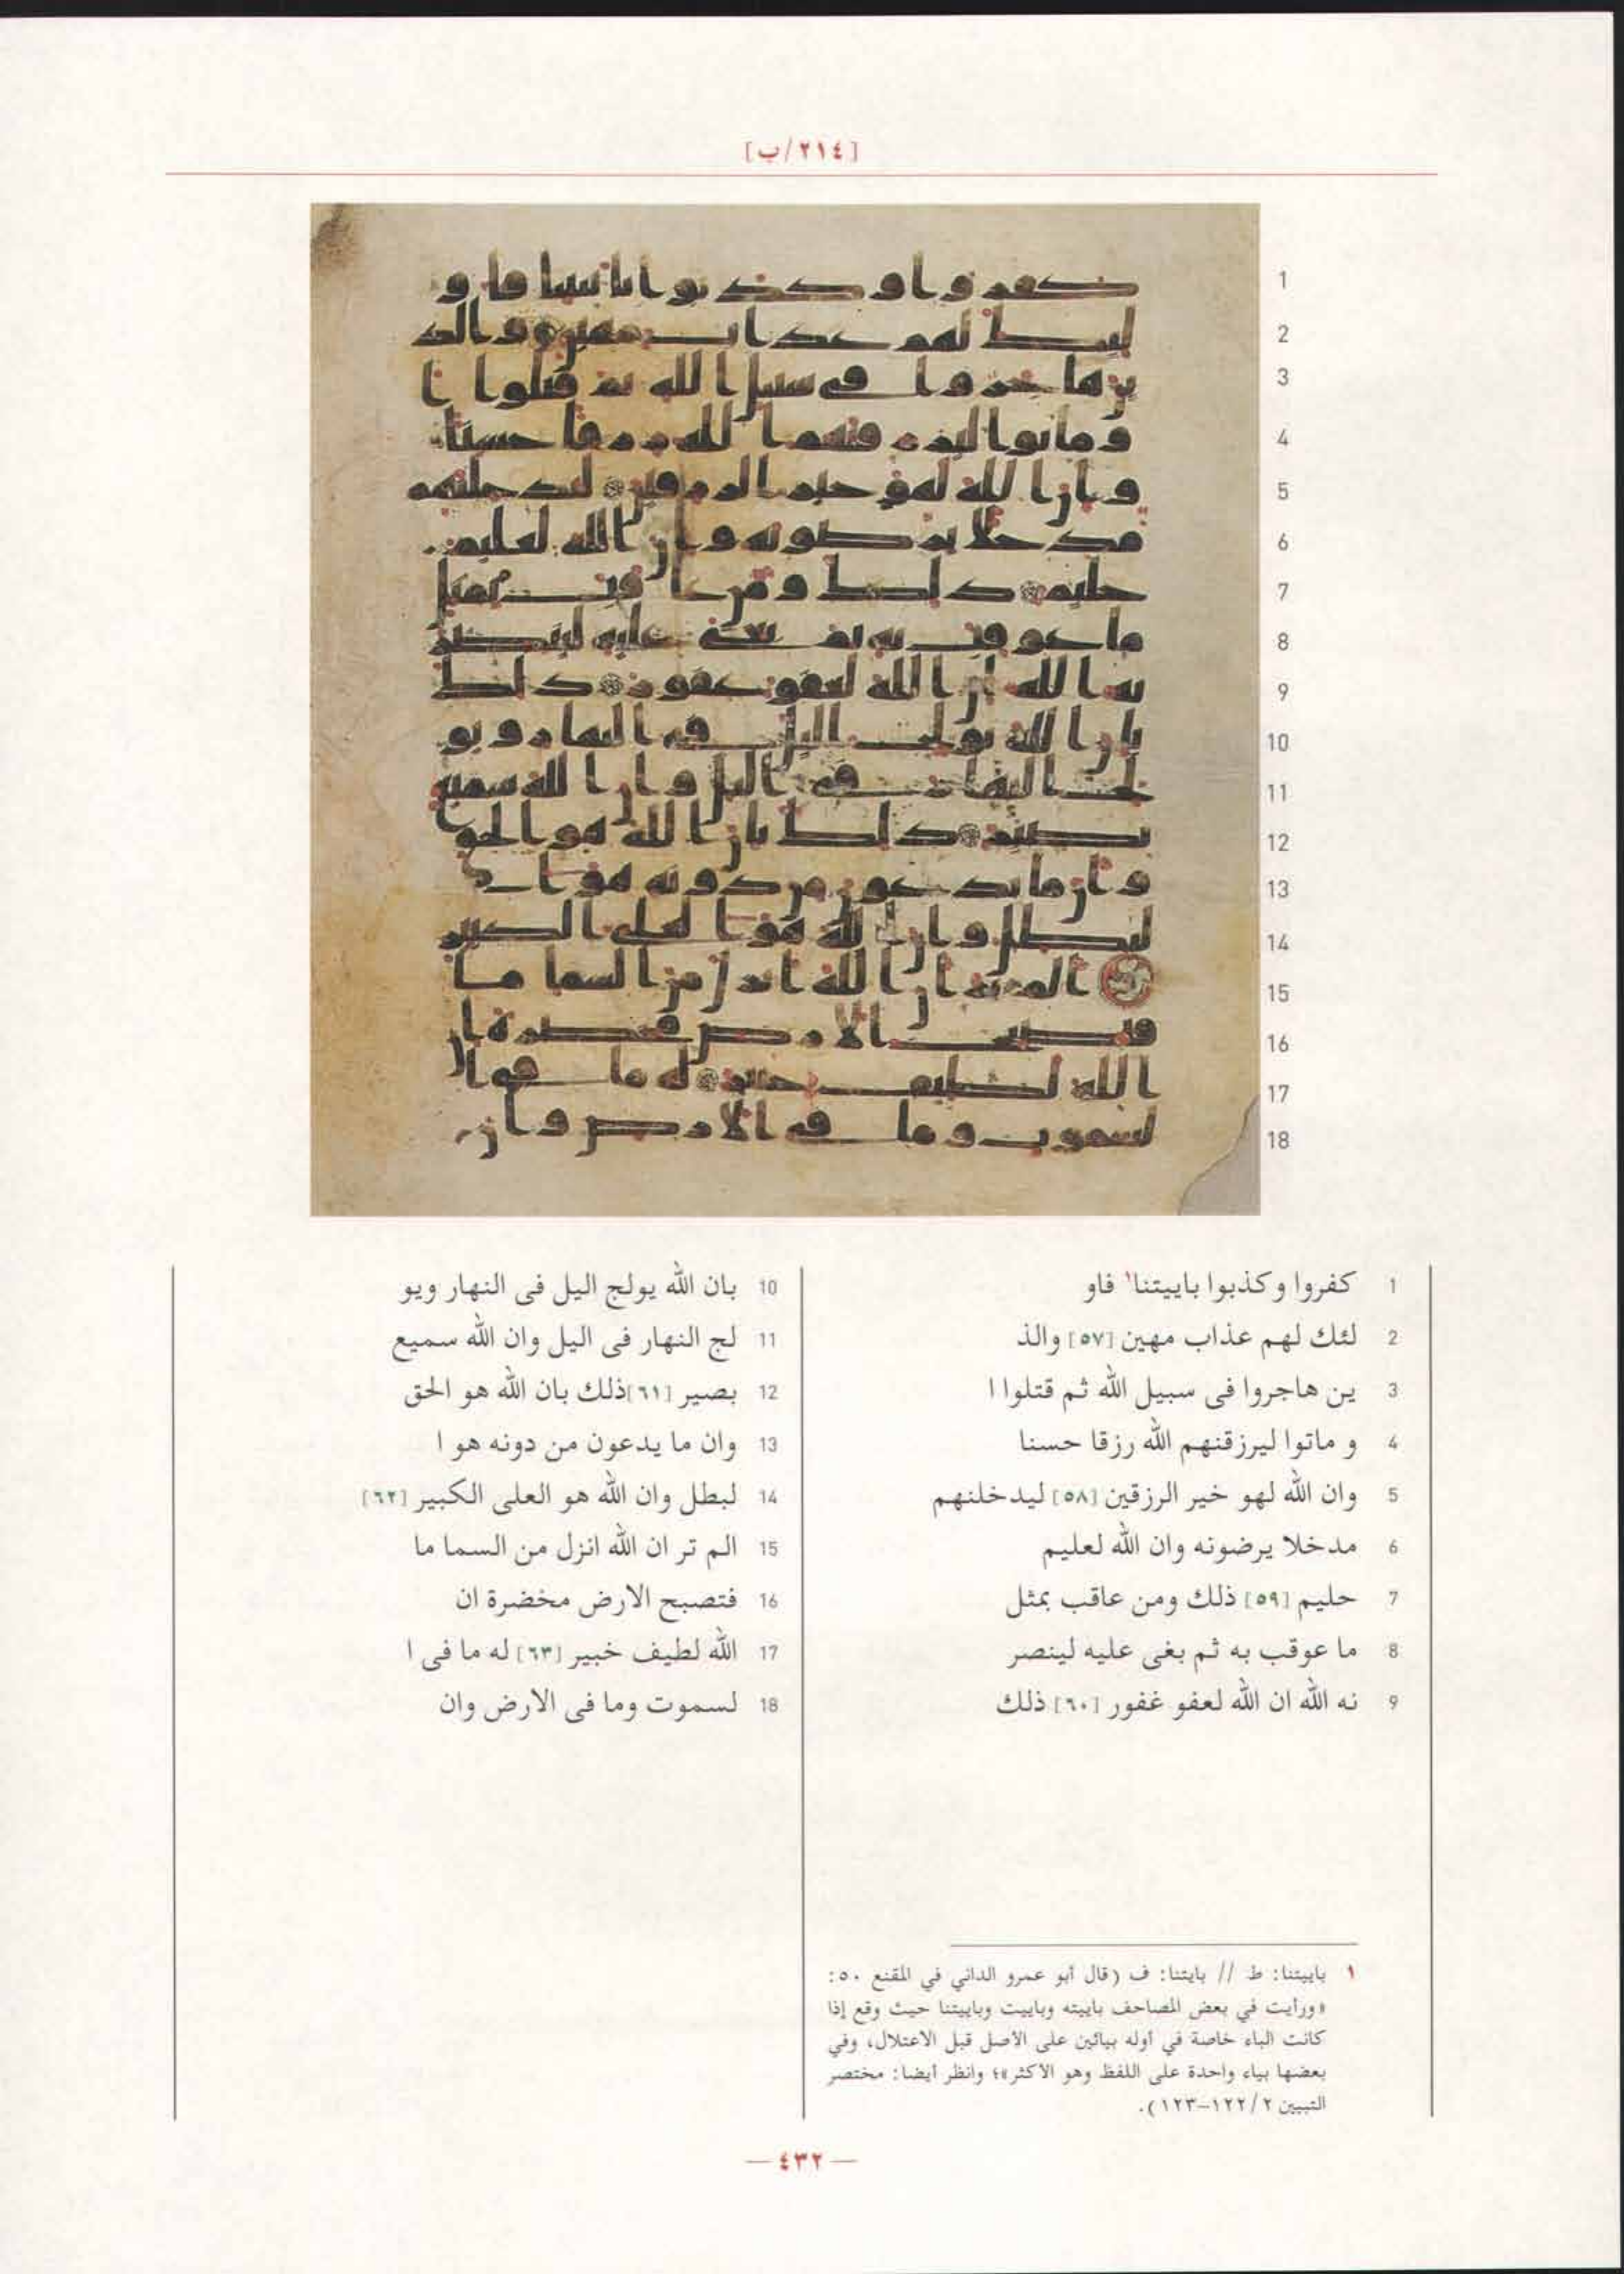 [٢١٤/ب]
1 كفروا وكذبوا باييتنا١ فاو
2 لئك لهم عذاب مهين [٥٧] والذ
3 ين هاجروا فى سبيل الله ثم قتلوا ا
4 و ماتوا ليرزقنهم الله رزقا حسنا
5 وان الله لهو خير الرزقين [٥٨] ليدخلنهم
6 مدخلا يرضونه وان الله لعليم
7 حليم [٥٩] ذلك ومن عاقب بمثل
8 ما عوقب به ثم بغى عليه لينصر
9 نه الله ان الله لعفو غفور [٦٠] ذلك
10 بان الله يولج اليل فى النهار ويو
11 لج النهار فى اليل وان الله سميع
12 بصير [٦١] ذلك بان الله هو الحق
13 وان ما يدعون من دونه هو ا
14 لبطل وان الله هو العلى الكبير [٦٢]
15 الم تر ان الله انزل من السما ما
16 فتصبح الارض مخضرة ان
17 الله لطيف خبير [٦٣] له ما فى ا
18 لسموت وما فى الارض وان
١ باييتنا: ط // بايتنا: ف (قال أبو عمرو الداني في المقنع ٥٠:
«ورأيت في بعض المصاحف باييته وباييت وباييتنا حيث وقع إذا
كانت الباء خاصة في أوله بيائين على الأصل قبل الاعتلال، وفي
بعضها بياء واحدة على اللفظ وهو الأكثر»؛ وانظر أيضا: مختصر
التبيين ١٢٢/٢–١٢٣).
— ٤٣٢ —